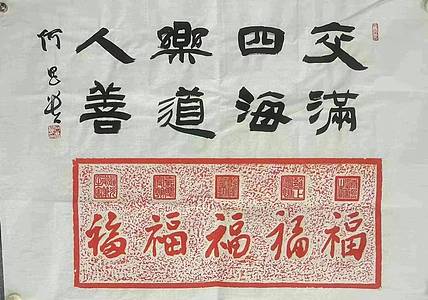 交滿
四海
樂道
人善
何
福福福福福